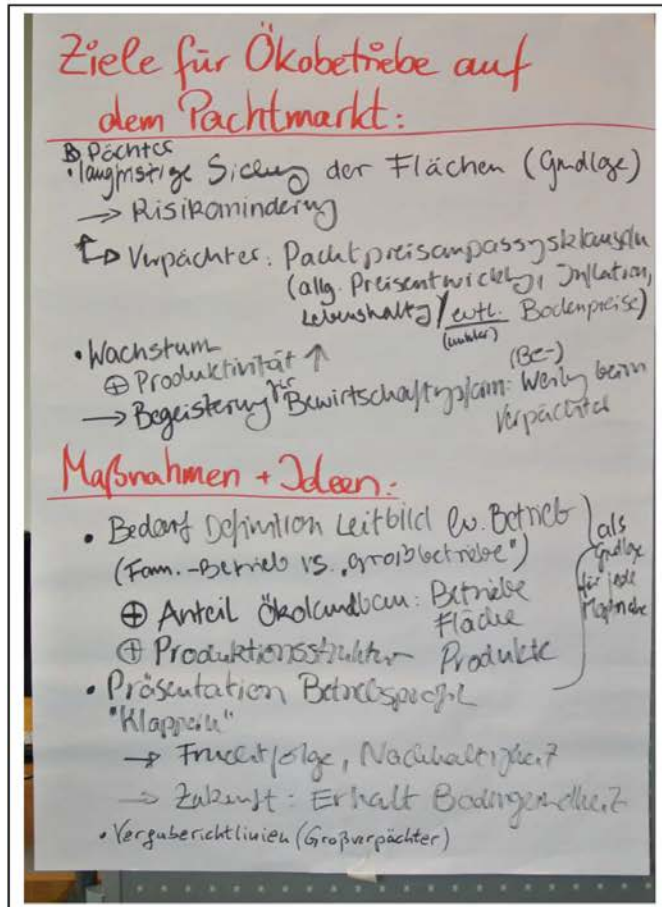 Ziele für Ökobetriebe auf
dem Pachtmarkt:
Pächter
• langfristige Sicherg der Flächen (Grundlage)
→ Risikominderung
↳ Verpächter: Pachtpreisanpassungsklauseln
(allg. Preisentwicklg, Inflation,
Lebenshaltg / evtl. Bodenpreise)
• Wachstum
⊕ Produktivität ↑
(Be-)
→ Begeisterung für Bewirtschaftgsform: Werbg beim
Verpächter
Maßnahmen + Ideen:
• Bedarf Definition Leitbild lw. Betrieb
(Fam.-Betrieb vs. „Großbetriebe")
⊕ Anteil Ökolandbau: Betriebe
Fläche
⊕ Produktionsstruktur Produkte
als
Grdlage
für jede
Maßnahme
• Präsentation Betriebsprofil
"Klappern"
→ Fruchtfolge, Nachhaltigkeit
→ Zukunft: Erhalt Bodengesundheit
• Vergaberichtlinien (Großverpächter)